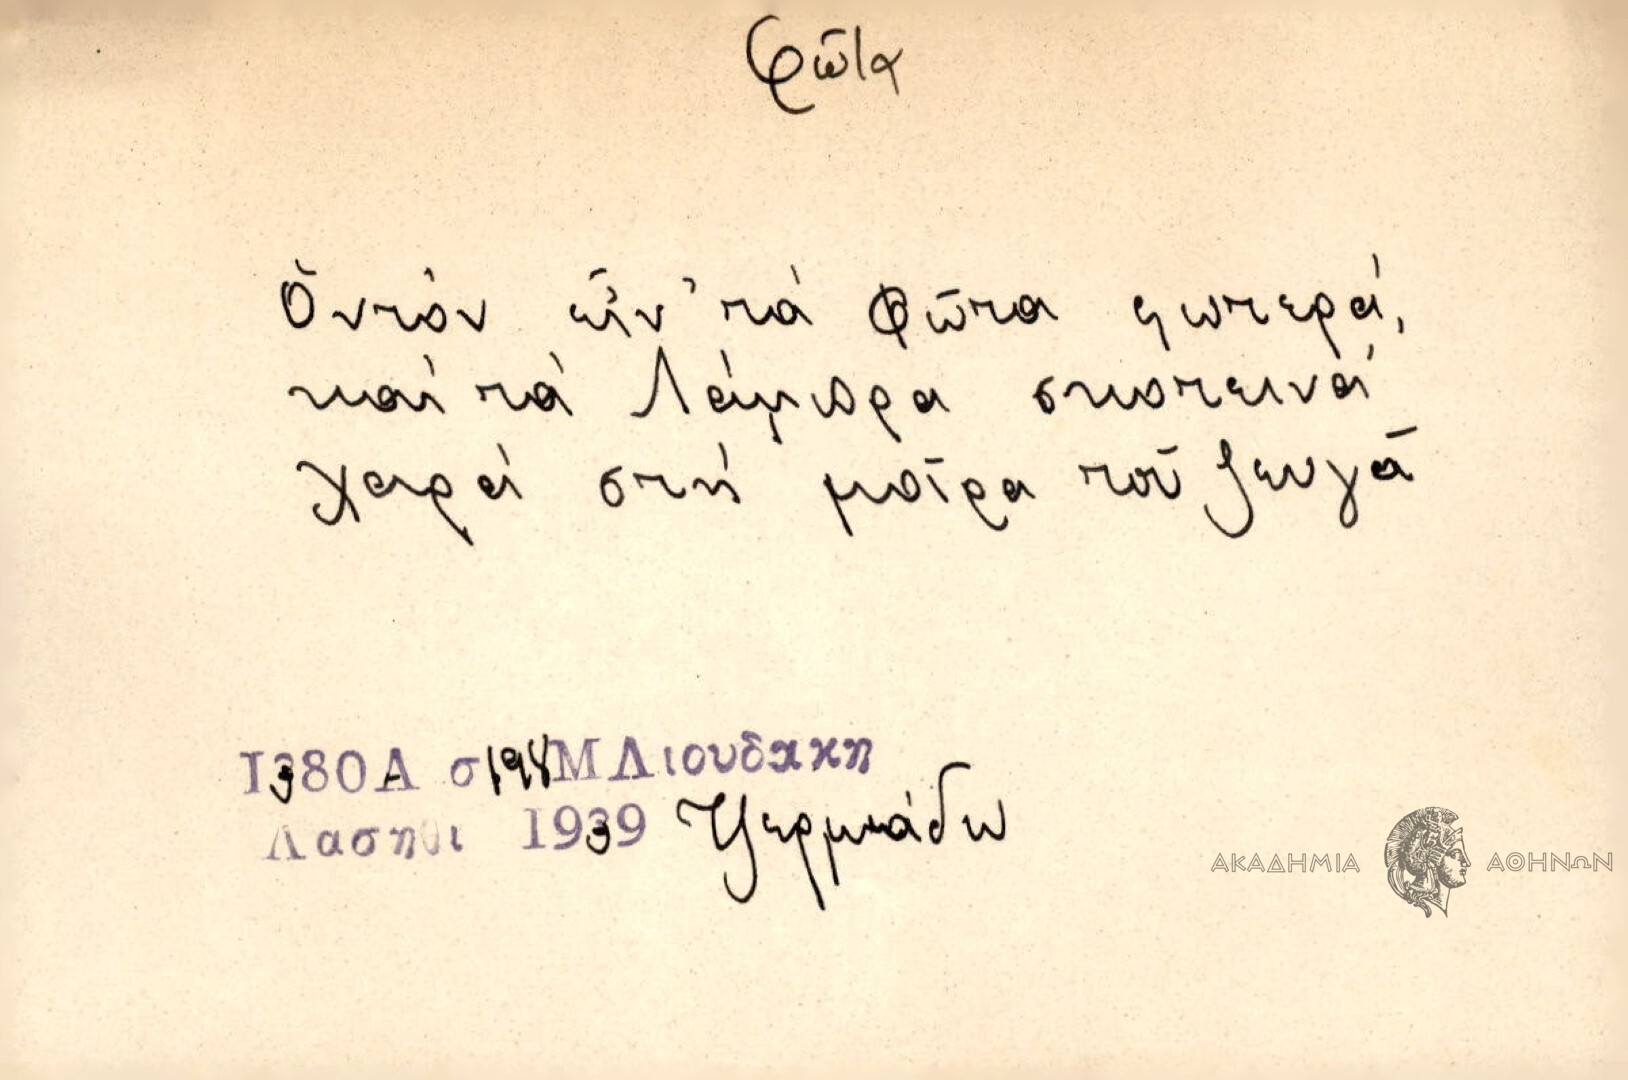 Φῶτα
Ὀντόν εἶν' τά Φῶτα φωτερά,
καί τά Λάμπρα σκοτεινά
Χαρά στή μοῖρα τοῦ ζευγᾶ
1380Α σ198 Μ Λιουδακη
Λασηθι 1939 Τζερμιάδω
ΑΚΑΔΗΜΙΑ ΑΘΗΝΩΝ